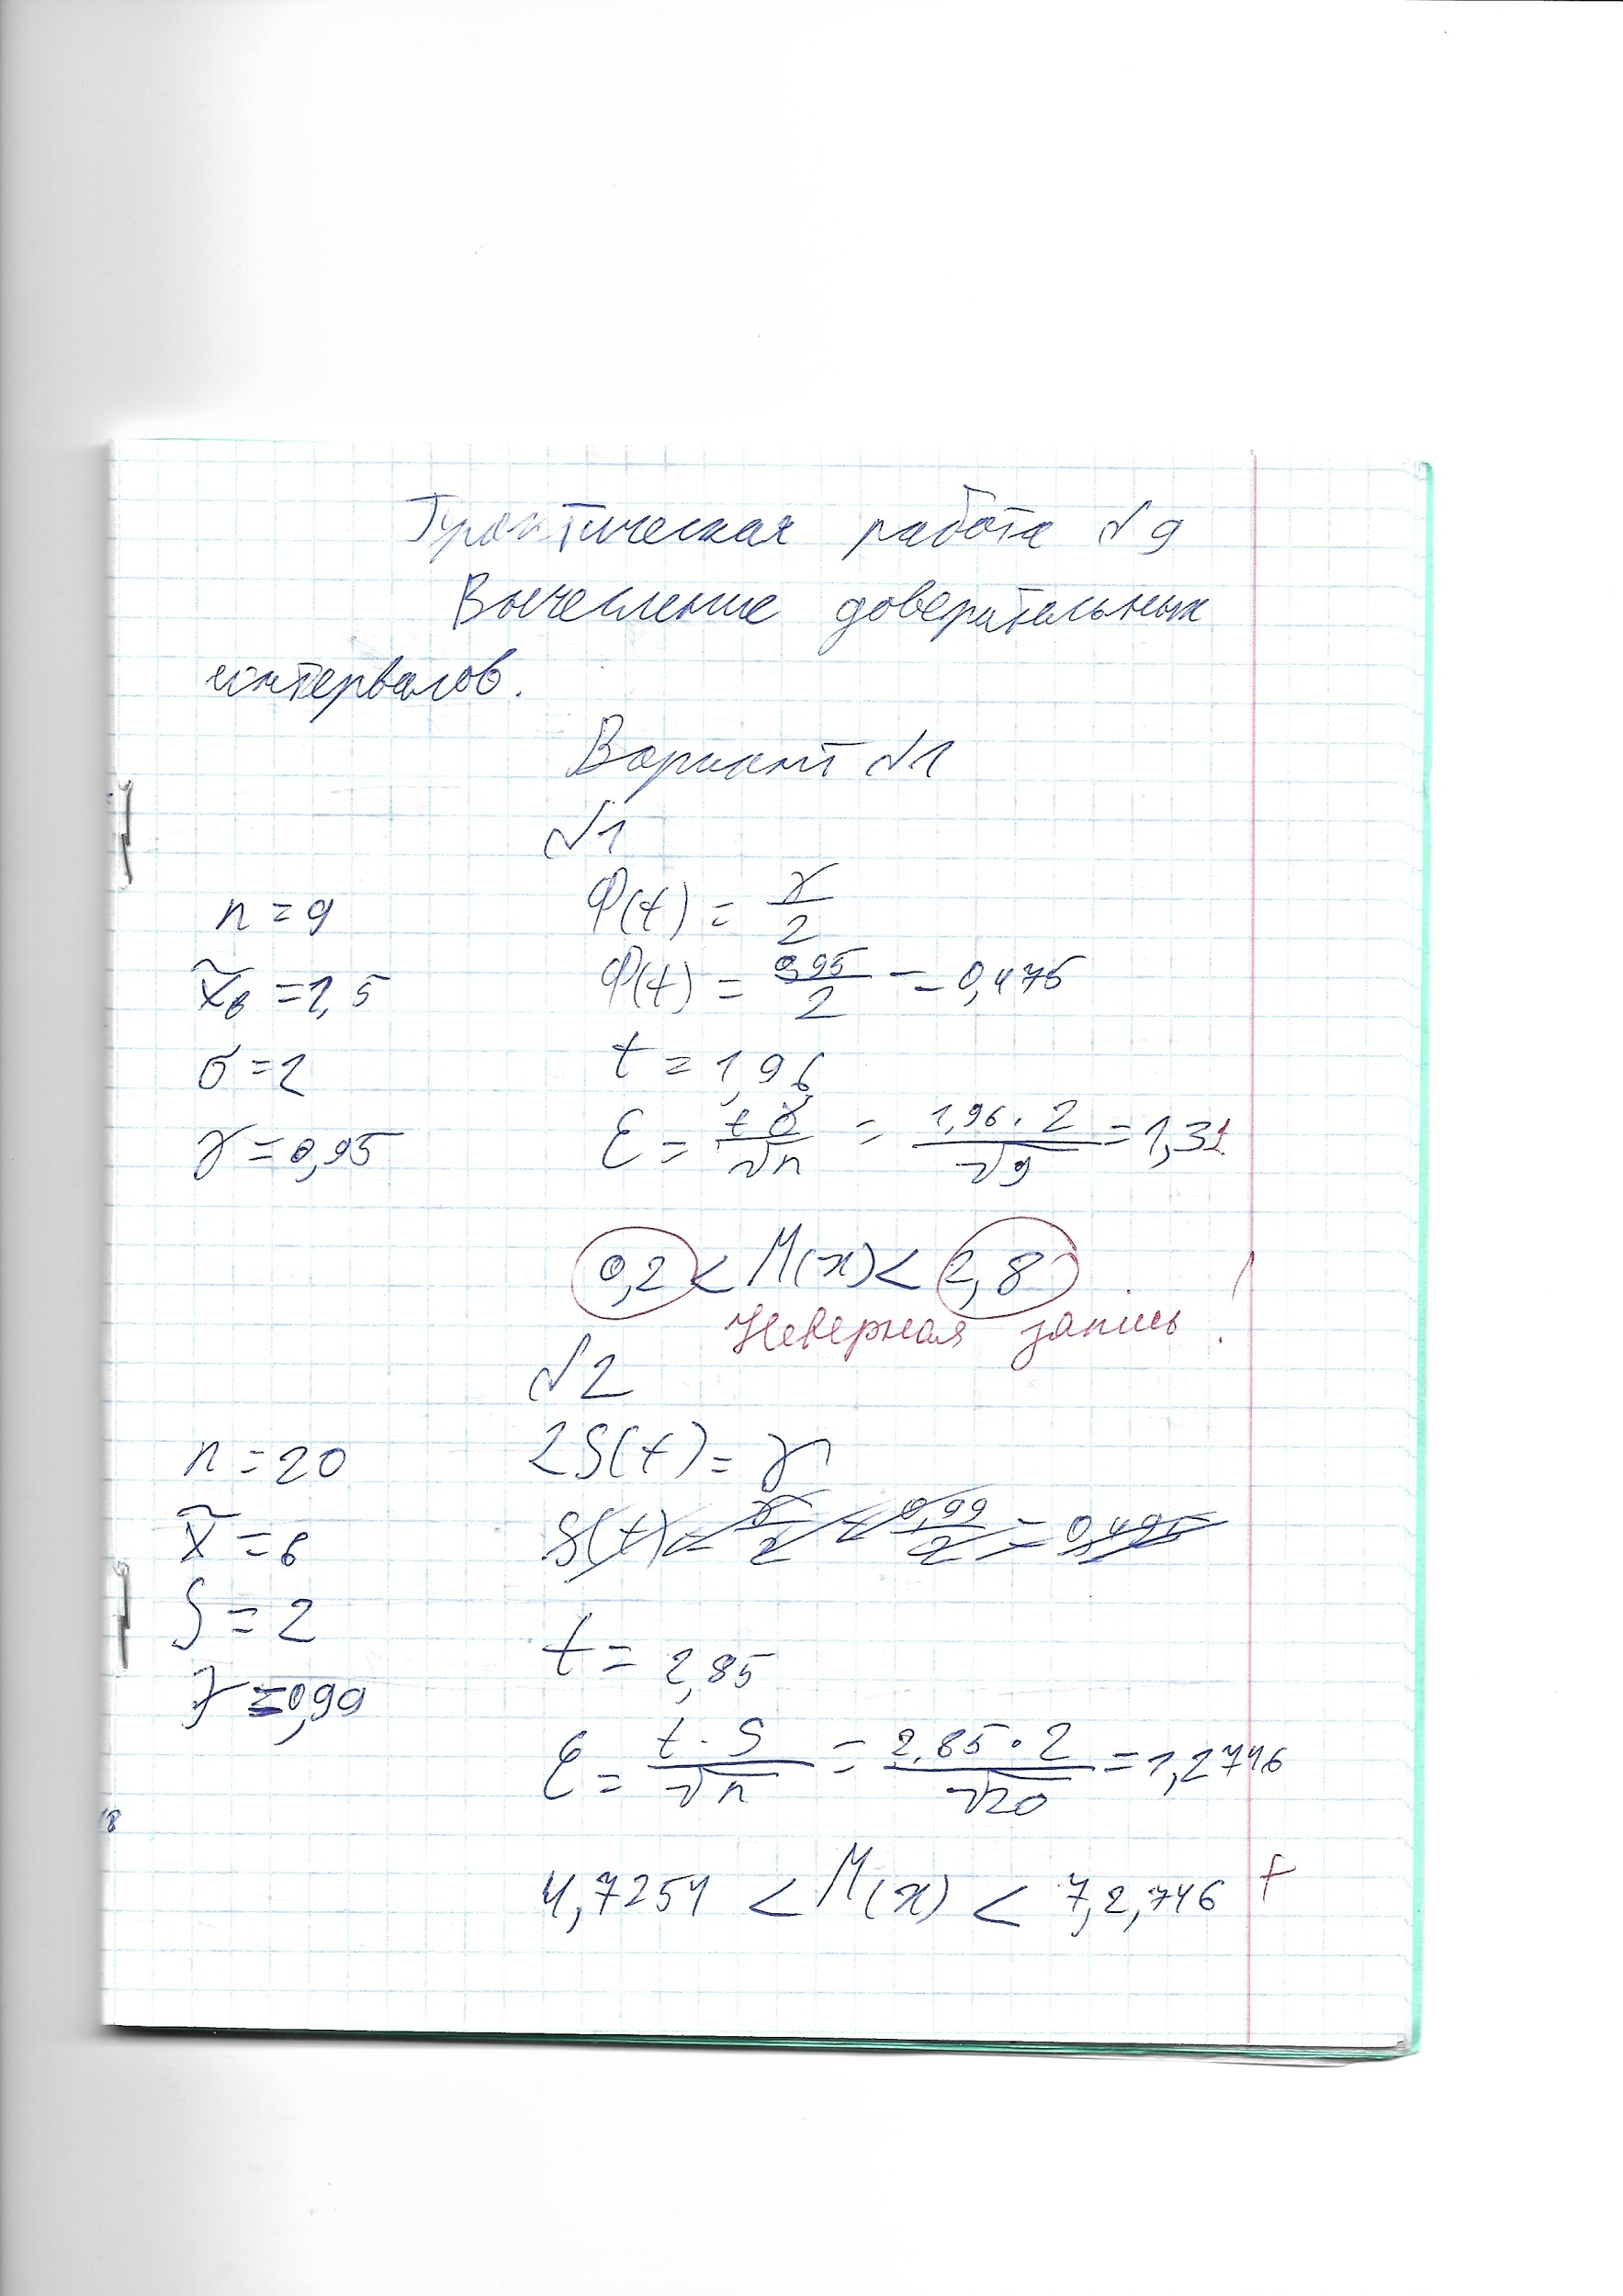 Практическая работа №9
Вычесление доверительных
интервалов.
Вариант №1
№1
n = 9
Φ(t) = γ/2
x̃в = 1,5
Φ(t) = 0,95/2 = 0,475
σ = 2
t = 1,96
γ = 0,95
ε = tσ/√n = 1,96·2/√9 = 1,31
0,2 < M(x) < 2,8
Неверная запись !
№2
n = 20
2S(t) = γ
x̃ = 6
S(t) = γ/2 = 0,99/2 = 0,495
S = 2
t = 2,85
γ = 0,99
ε = t·S/√n = 2,85·2/√20 = 1,2746
18
4,7254 < M(x) < 7,2,746 +